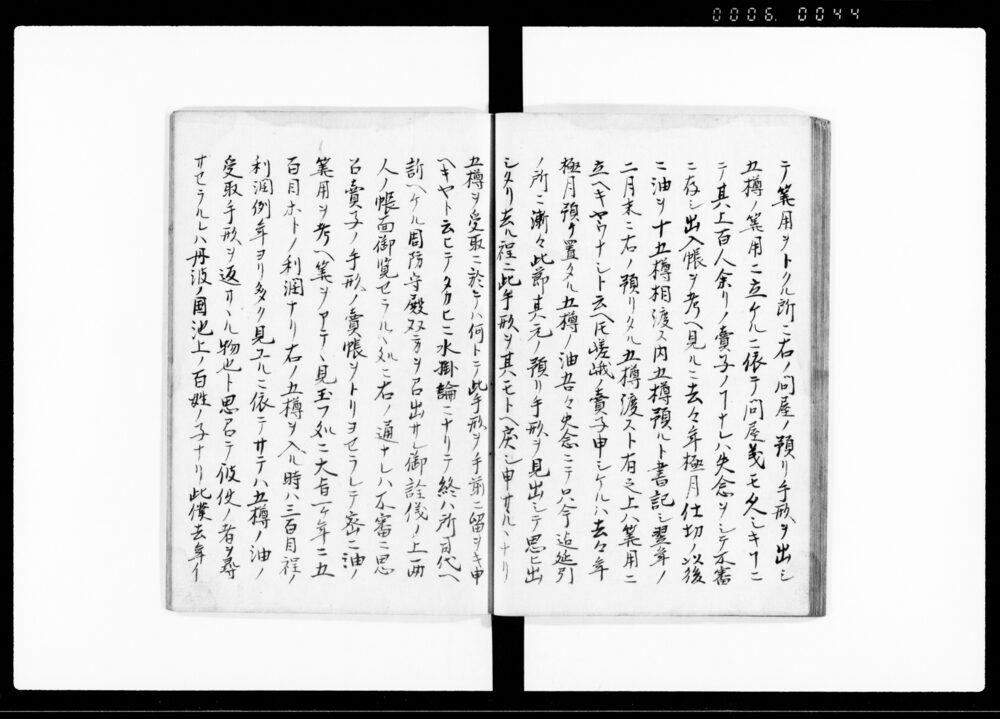 0006. 0044
テ筭用ヲトクル所ニ右ノ問屋ノ預リ手形ヲ出シ
五樽ノ筭用ニ立ケルニ依テ問屋義モ久シキヿニ
テ其上百人余リノ賣子ノヿナレハ失念ヲシテ不審
ニ存シ出入帳ヲ考ヘ見ルニ去々年極月仕切ノ以後
ニ油ヲ十五樽相渡ス内五樽預ルト書記シ翌年ノ
二月末ニ右ノ預リタル五樽渡スト有之上ハ筭用ニ
立ヘキヤウナシト云ヘ𪜈嵯峨ノ賣子申シケルハ去々年
極月預ケ置タル五樽ノ油吾々失念ニテ只今迄延引
ノ所ニ漸々此節其元ノ預リ手形ヲ見出シテ思ヒ出
シタリ去ル程ニ此手形ヲ其モトヘ戻シ申サルヽナリ
五樽ヲ受取ニ於テハ何トテ此手形ヲ手前ニ留ヲキ申
ヘキヤト云ヒテタカヒニ水掛論ニナリテ終ハ所司代ヘ
訴ヘケル周防守殿双方ヲ召出サレ御詮儀ノ上両
人ノ帳面御覧セラルヽ処ニ右ノ通ナレハ不審ニ思
召賣子ノ手形ノ賣帳ヲトリヨセラレテ密ニ油ノ
筭用ヲ考ヘ筭ヲアテヽ見玉フ処ニ大吉一ケ年ニ五
百目ホトノ利潤ナリ右ノ五樽ヲ入ル時ハ三百目程ノ
利潤例年ヨリ多ク見ユルニ依テサテハ五樽ノ油ノ
受取手形ヲ返サヽル物也ト思召テ彼使ノ者ヲ尋
サセラルレハ丹波ノ國池上ノ百姓ノ子ナリ此僕去年ノ